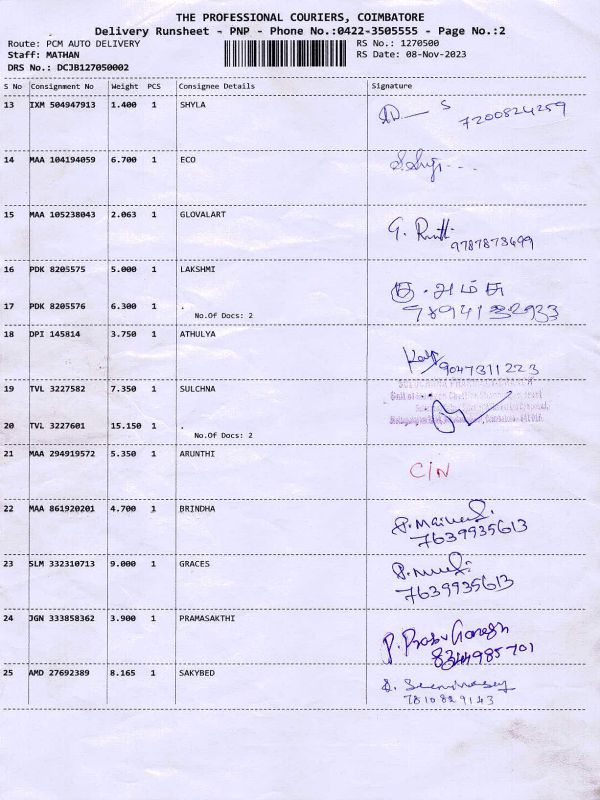 THE PROFESSIONAL COURIERS, COIMBATORE
Delivery Runsheet - PNP - Phone No.:0422-3505555 - Page No.:2
Route: PCM AUTO DELIVERY RS No.: 1270500
Staff: MATHAN RS Date: 08-Nov-2023
DRS No.: DCJB127050002
S No Consignment No Weight PCS Consignee Details Signature
13 IXM 504947913 1.400 1 SHYLA
7200824259
14 MAA 104194059 6.700 1 ECO
15 MAA 105238043 2.063 1 GLOVALART
G.
9787873499
16 PDK 8205575 5.000 1 LAKSHMI
17 PDK 8205576 6.300 1 .
No.Of Docs: 2
18 DPI 145814 3.750 1 ATHULYA
9047311223
19 TVL 3227582 7.350 1 SULCHNA
20 TVL 3227601 15.150 1 .
No.Of Docs: 2
21 MAA 294919572 5.350 1 ARUNTHI
C/N
22 MAA 861920201 4.700 1 BRINDHA
7639935613
23 SLM 332310713 9.000 1 GRACES
7639935613
24 JGN 333858362 3.900 1 PRAMASAKTHI
P. Prabu Ganesh
25 AMD 27692389 8.165 1 SAKYBED
7810829143